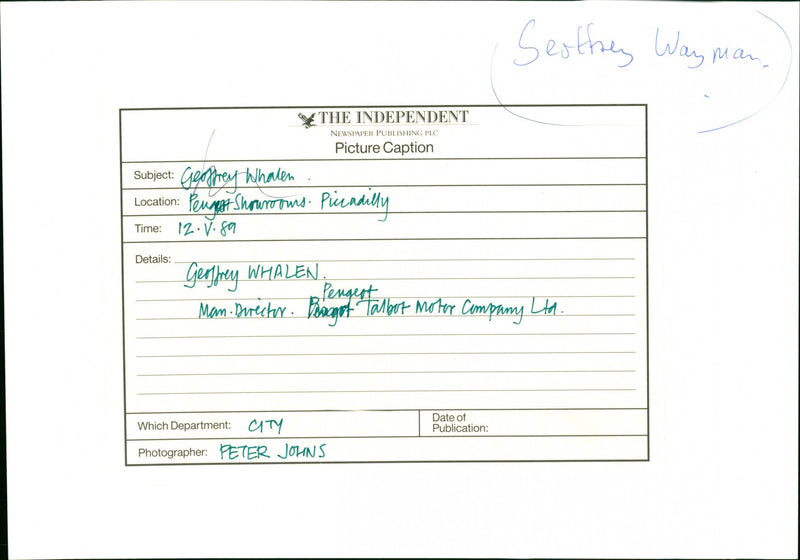 Geoffrey Wayman.
THE INDEPENDENT
NEWSPAPER PUBLISHING PLC
Picture Caption
Subject: Geoffrey Whalen.
Location: Peugeot Showrooms. Piccadilly
Time: 12.V.89
Details:
Geoffrey WHALEN.
Peugeot
Man. Director. Talbot Motor Company Ltd.
Which Department: CITY
Date of
Publication:
Photographer: PETER JOHNS